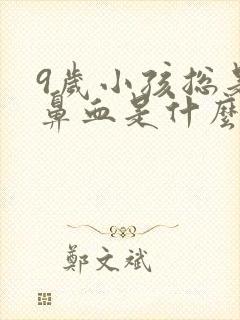 9歲小孩总是
鼻血是什麼
鄭文斌